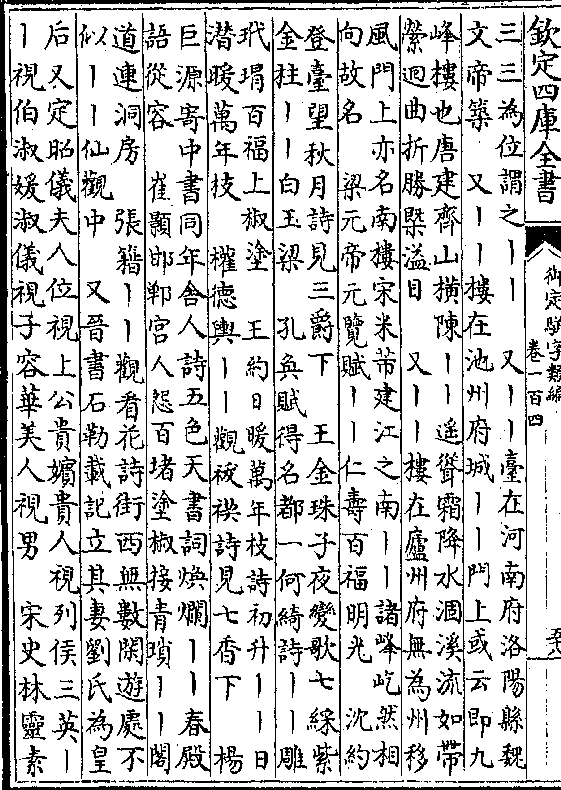 欽定四庫全書
御定駢字類編
卷一百四
三三為位謂之丨丨 又丨丨臺在河南府洛陽縣魏
文帝築 又丨丨樓在池州府城丨丨門上或云即九
峰樓也唐建齊山橫陳丨丨遙聳霜降水涸溪流如帶
縈迴曲折勝槩溢目 又丨丨樓在廬州府無為州移
風門上亦名南樓宋米芾建江之南丨丨諸峰屹然相
向故名 梁元帝元覽賦丨丨仁壽百福明光 沈約
登臺望秋月詩見三爵下 王金珠子夜變歌七綵紫
金柱丨丨白玉梁 孔奐賦得名都一何綺詩丨丨雕
玳瑁百福上椒塗 王約日暖萬年枝詩初升丨丨日
潜暖萬年枝 權德輿丨丨觀祓禊詩見七香下 楊
巨源寄中書同年舍人詩五色天書詞煥爛丨丨春殿
語從容 崔顥邯鄲宮人怨百堵塗椒接青瑣丨丨閣
道連洞房 張籍丨丨觀看花詩街西無數閑遊處不
似丨丨仙觀中 又晉書石勒載記立其妻劉氏為皇
后又定昭儀夫人位視上公貴嬪貴人視列侯三英丨
丨視伯淑媛淑儀視子容華美人視男 宋史林靈素